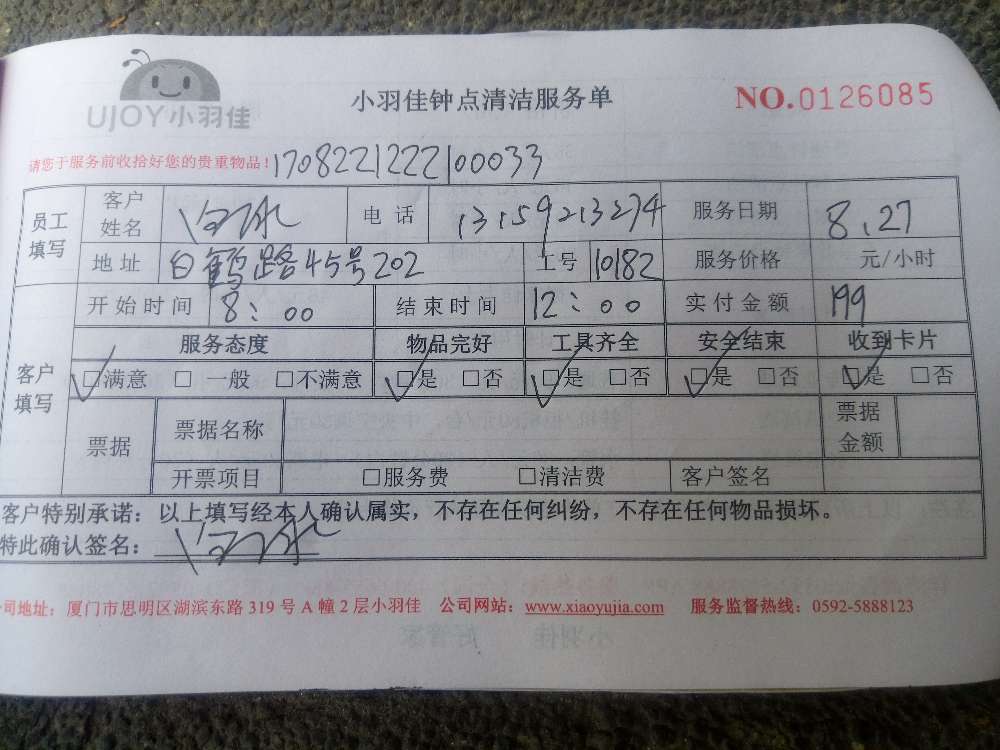 UJOY小羽佳
小羽佳钟点清洁服务单
NO.0126085
请您于服务前收拾好您的贵重物品!170822122210033
员工填写 客户姓名 电话 13159213274 服务日期 8.27
地址 白鹤路45号202 工号 10182 服务价格 元/小时
开始时间 8:00 结束时间 12:00 实付金额 199
客户填写 服务态度 物品完好 工具齐全 安全结束 收到卡片
☑满意 □一般 □不满意 ☑是 □否 ☑是 □否 ☑是 □否 ☑是 □否
票据 票据名称 票据金额
开票项目 □服务费 □清洁费 客户签名
客户特别承诺:以上填写经本人确认属实,不存在任何纠纷,不存在任何物品损坏。
特此确认签名:
司地址:厦门市思明区湖滨东路 319 号 A 幢 2 层小羽佳 公司网站:www.xiaoyujia.com 服务监督热线:0592-5888123